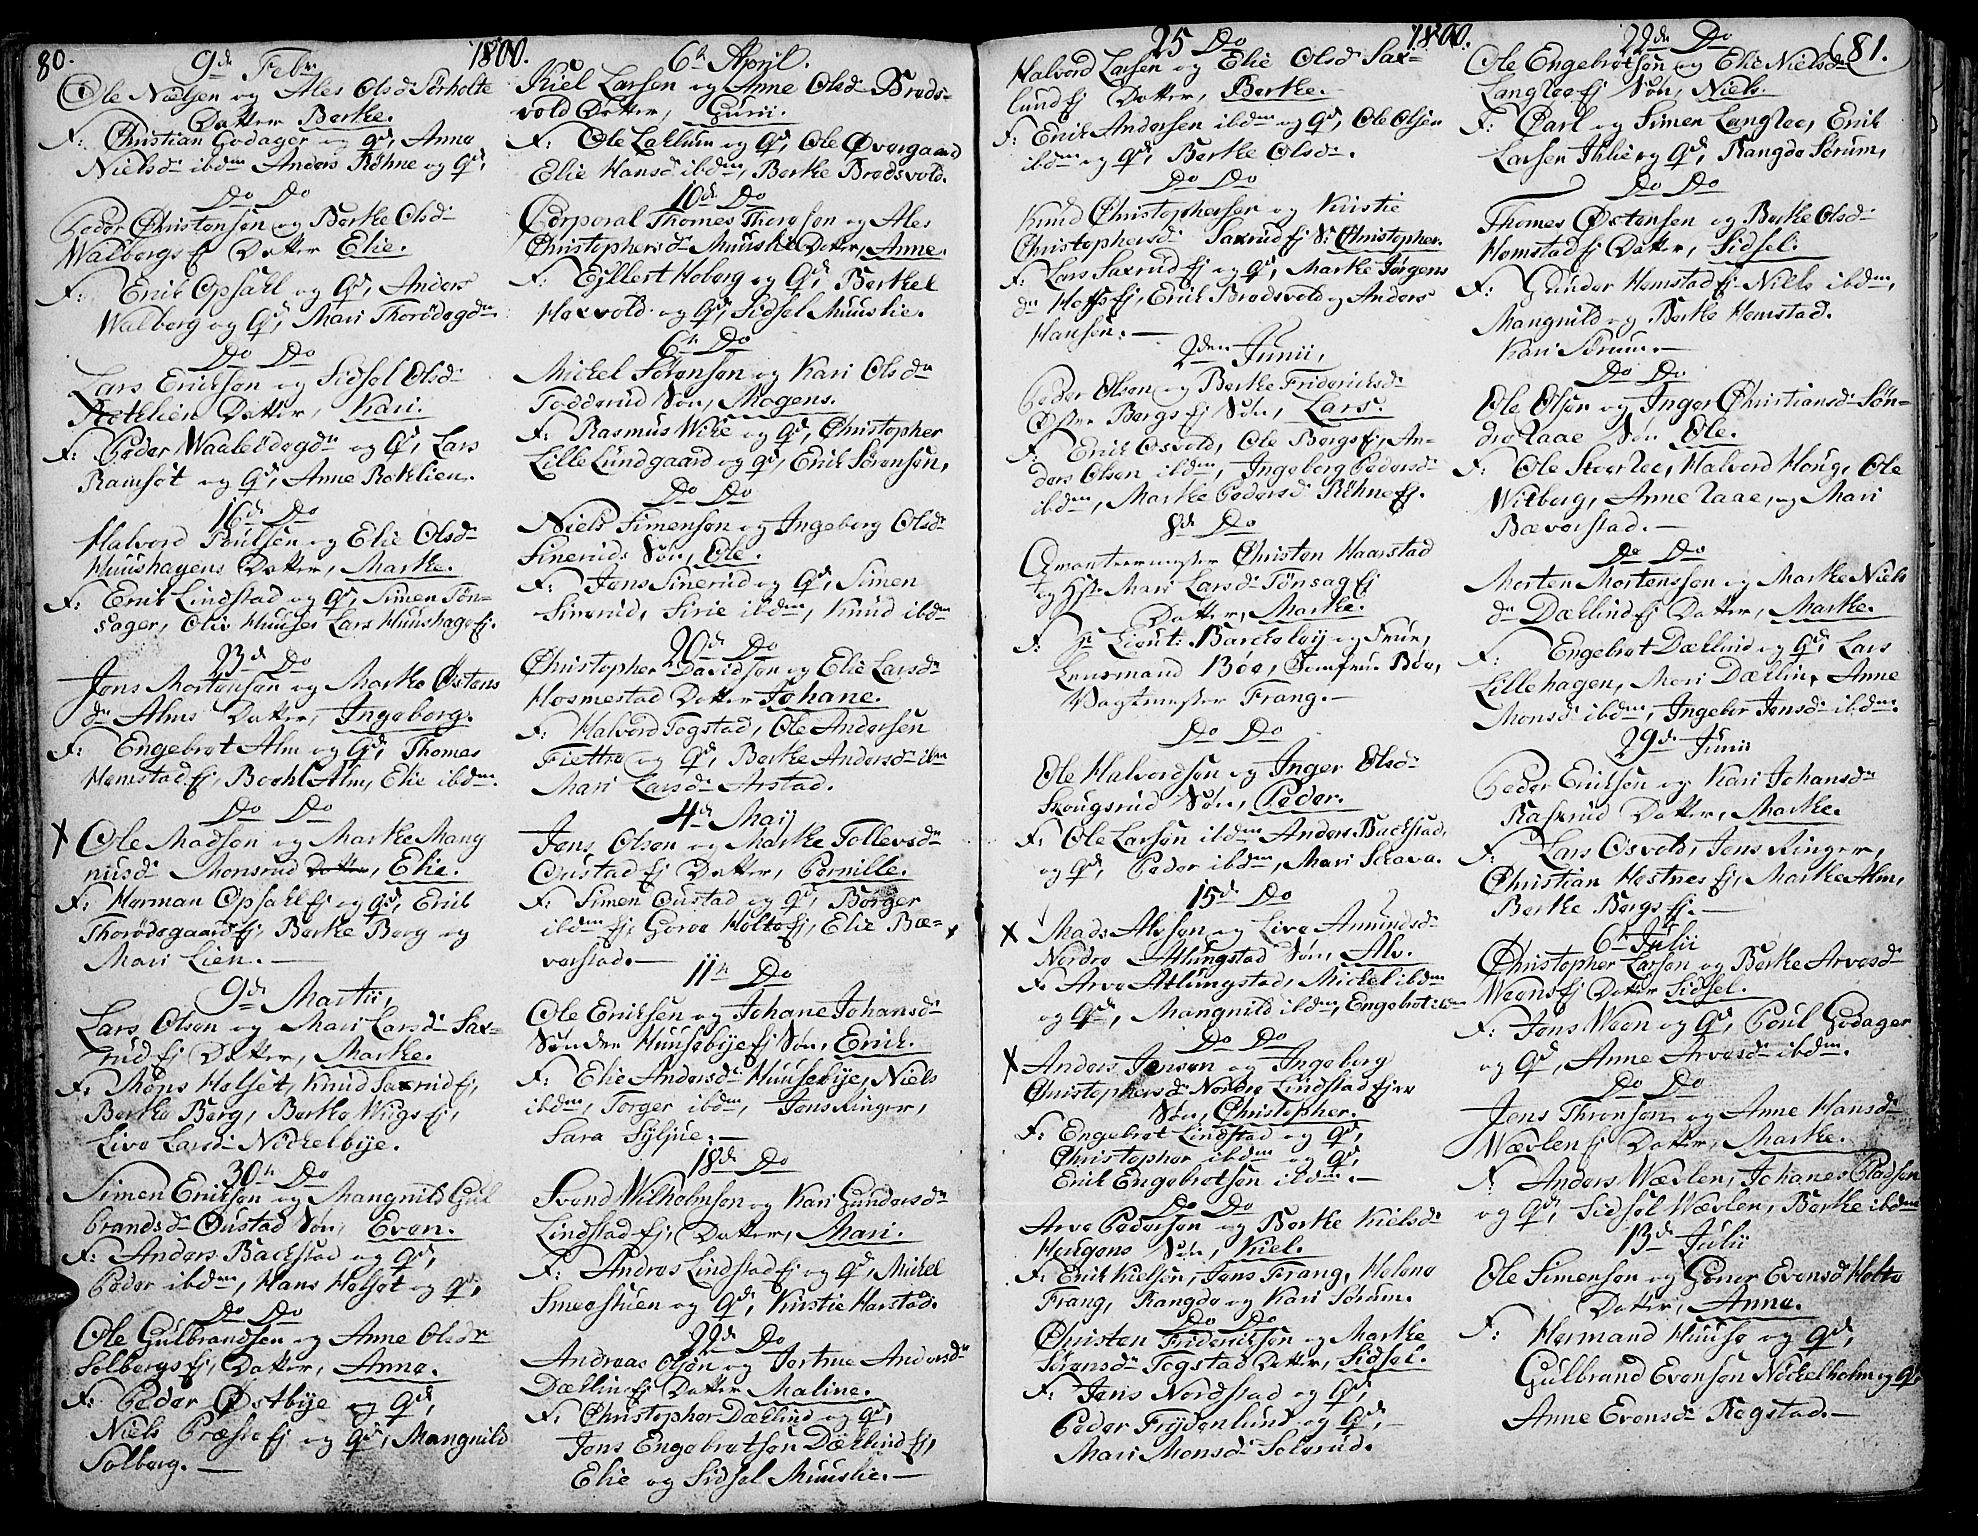 80.
1800.
9de Febr.
Ole Nielsen og Ales Olsdr Sørholte
Datter Berthe.
F: Christian Godager og Qd, Anne
Nielsdr ibdm Anders Røhne og Qd,
Do Do
Peder Christensen og Berthe Olsdr
Walbergs Ej Datter Elie.
F: Erik Opsahl og Qd, Anders
Walberg og Qd, Mari Thorødegdn
Do Do
Lars Ericksen og Sidsel Olsdr
Rothlien Datter, Kari.
F: Peder Waaleødegdn og Qd, Lars
Ramsøt og Qd, Anne Rothlien.
16de Do
Halvord Poulsen og Elie Olsdr
Huushagens Datter, Marthe.
F: Erik Lindstad og Qd, Simen Tøn-
sager, Olia Huuse, Lars Huushage Ej.
23de Do
Jens Mortensen og Marthe Østens
dr Alms Datter, Ingeborg.
F: Engebret Alm og Qd, Thomes
Hemstad Ej, Boehl Alm, Elie ibdm.
Do Do
X Ole Madsen og Marthe Mang
nusdr Monsrud Datter, Elie.
F: Herman Opsahl Ej og Qd, Erik
Thorødegaard Ej, Berthe Berg og
Mari Lien.
9de Martii,
Lars Olsen og Mari Larsdr Sax-
rud Ej Datter, Marthe.
F: Møns Holset, Knud Saxrud Ej,
Berthe Berg, Berthe Wiigs Ej,
Live Larsdr Nickelbye.
30te Do
Simen Ericksen og Mangnild Gul
brandsdr Oustad Søn, Even.
F: Anders Backstad og Qd,
Peder ibdm, Hans Holset og Qd,
Do Do
Ole Gulbrandsen og Anne Olsdr
Solbergs Ej, Datter, Anne.
F: Peder Østbye og Qd,
Niels Præste Ej og Qd, Mangnild
Solberg.
6te April.
Kiel Larsen og Anne Olsdr Brøds-
vold Datter, Gurii.
F: Ole Laklum og Qd, Ole Øvergaard
Elie Hansdr ibdm, Berthe Brødsvold.
10de Do
Corporal Thomes Thoresen og Ales
Christophersdr Muuslie Datter, Anne.
F: Ejllert Hoberg og Qd, Berthel
Hoxvold og Qd, Sidsel Muuslie.
6te Do
Mickel Sørensen og Kari Olsdr
Todderud Søn, Mogens.
F: Rasmus Wike og Qd, Christopher
Lille Lundgaard og Qd, Erik Sørensen,
Do Do
Niels Simensen og Ingeborg Olsdr
Sineruds Søn, Ole.
F: Jens Sinerud og Qd, Simen
Sinerud, Sirie ibdm, Knud ibdm
20de Do
Christopher Davidsen og Elie Larsdr
Hosmestad Datter Johane.
F: Halvord Togstad, Ole Andersen
Fiettre og Qd, Berthe Andersdr ibm
Mari Larsdr Arstad.
4de Maij
Jens Olsen og Marthe Tollevsdr
Oustad Ej Datter, Pernille.
F: Simen Oustad og Qd, Børger
ibdm Ej, Gorve Holte Ej, Elie Bæ-
verstad.
11te Do
Ole Ericksen og Johane Johansdr
Sønden Huusebye Ej Søn, Erik.
F: Elie Andersdr Huusebye, Niels
ibdm, Torger ibdm, Jens Ringer,
Sara Syljue.
18de Do
Svend Wilhelmsen og Kari Gundersdr
Lindstad Ej, Datter, Mari.
F: Andres Lindstad Ej og Qd, Mickel
Smestuen og Qd, Kirstie Harstad.
22de Do
Andreas Olsen og Jertrue Andersdr
Dællin Ej Datter Maline.
F: Christopher Dællind og Qd,
Jens Engebretsen Dællind Ej,
Elie og Sidsel Muuslie.
1800.
81.
25 Do
Halvord Larsen og Elie Olsdr Sax-
lund Ej Datter, Berthe.
F: Erik Andersen ibdm og Qd, Ole Olsen
ibdm og Qd, Berthe Olsdr.
Do Do
Knud Christophersen og Kirstie
Christophersdr Saxrud Ej S: Christopher.
F: Lars Saxrud Ej og Qd, Marthe Jørgens
dr Hoffs Ej, Erik Brødsvold og Anders
Hansen.
2den Junii,
Peder Olsen og Berthe Fridericksdr
Østre Bergs Ej Søn, Lars.
F: Erik Osvold, Ole Bergs Ej, An-
ders Olsen ibdm, Ingeborg Pedersdr
ibdm, Marthe Pedersdr Røhne Ej.
8de Do
Qvarteermester Christen Haarstad
og Hstr Mari Larsdr Tønsag Ej
Datter, Marthe.
F: Pr Lieut: Barckeleij og Frue,
Lensmand Bøe, Jomfrue Bøe,
Wagtmester Frang.
Do Do
Ole Halvordsen og Inger Olsdr
Skougsrud Søn, Peder.
F: Ole Larsen ibdm Anders Backstad
og Qd, Peder ibdm, Mari Sterva.
15de Do
X Mads Alvsen og Live Amundsdr
Nordre Atlungstad Søn, Alv.
F: Arve Atlungstad, Mickel ibdm
og Qd, Mangnild ibdm, Engebret ibdm
Do Do
X Anders Jensen og Ingeborg
Christophersdr Nordre Lindstad Ejer
Søn, Christopher.
F: Engebret Lindstad og Qd,
Christopher ibdm og Qd,
Erik Engebretsen ibdm.
Do Do
Arve Pedersen og Berthe Kielsdr
Hougens Søn, Kiel.
F: Erik Kielsen, Jens Frang, Helene
Frang, Rangde og Kari Sørum.
Do Do
Christen Fridericksen og Marthe
Sørensdr Togstad Datter, Sidsel.
F: Jens Nordstad og Qd,
Peder Frydenlund og Qd,
Mari Monsdr Solerud.
22de Do
Ole Engebretsen og Elie Nielsdr
Langlee Ej Søn, Niels.
F: Carl og Simen Langlee, Erik
Larsen Ihle og Qd, Rangde Sørum,
Do Do
Thomes Østensen og Berthe Olsdr
Hemstad Ej Datter, Sidsel.
F: Gunder Hemstad Ej Niels ibdm,
Mangnild og Berthe Hemstad.
Kari Sørum.
Do Do
Ole Olsen og Inger Christiansdr Søn-
dre Laae Søn Ole.
F: Ole Skoerlee, Halvord Houg, Ole
Wilberg, Anne Laae, og Mari
Bæverstad.
Do Do
Morten Mortensen og Marthe Niels
dr Dællind Ej Datter, Marthe.
F: Engebret Dællind og Qd, Lars
Lillehagen, Mari Dællin, Anne
Monsdr ibdm, Ingeber Jensdr ibdm.
29de Junii
Peder Ericksen og Kari Johansdr
Raskrud Datter, Marthe.
F: Lars Osvold, Jens Ringer,
Christian Hestnes Ej, Marthe Alm,
Berthe Bergs Ej.
6te Julii
Christopher Larsen og Berthe Arvesdr
Weens Ej Datter Sidsel.
F: Jens Ween og Qd, Poul Godager
og Qd, Anne Arvesdr ibdm.
Do Do
Jens Thronsen og Anne Hansdr
Wævlen Ej Datter, Marthe.
F: Anders Wævlen, Johanes Pladsen
og Qd, Sidsel Wævlen, Berthe ibdm
13de Julii
Ole Simensen og Goner Evensdr Holte
Datter, Anne.
F: Hermand Huuse og Qd,
Gulbrand Evensen Nickelholm og Qd
Anne Evensdr Rogstad.